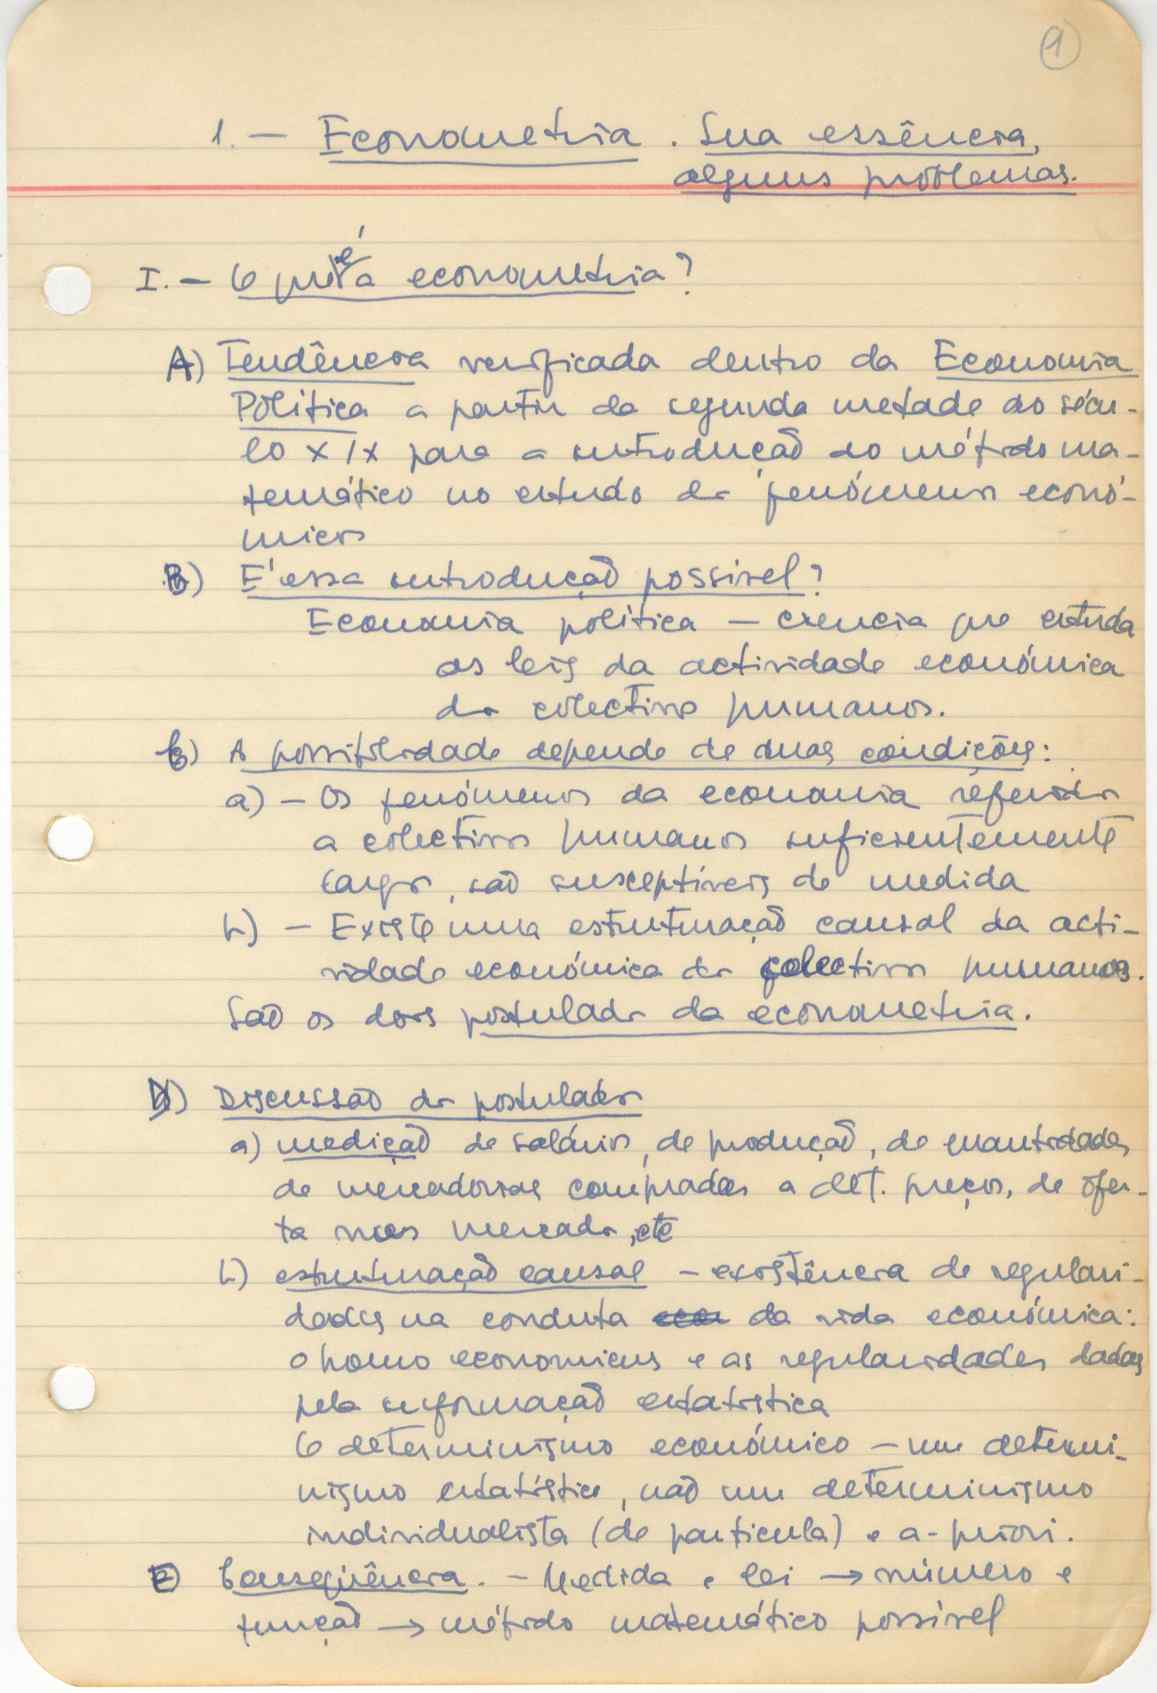 1
1. — Econometria. Sua essência,
alguns problemas.
I. — O que é a econometria?
A) Tendência verificada dentro da Economia
Política a partir da segunda metade do sécu-
lo XIX para a introdução do método ma-
temático no estudo dos fenómenos econó-
micos
B) E' essa introdução possível?
Economia política — ciencia que estuda
as leis da actividade económica
dos colectivos humanos.
C) A possibilidade depende de duas condições:
a) — Os fenómenos da economia referidos
a colectivos humanos suficientemente
largos, são susceptíveis de medida
b) — Existe uma estruturação causal da acti-
vidade económica dos colectivos humanos.
São os dois postulados da econometria.
D) Discussão dos postulados
a) medição de salários, de produção, de quantidades
de mercadorias compradas a det. preços, de ofer-
ta nos mercados, etc
b) estruturação causal — existência de regulari-
dades na conduta da vida económica:
o homo economicus e as regularidades dadas
pela informação estatística
O determinismo económico — um determi-
nismo estatístico, não um determinismo
individualista (de particula) e a-priori.
E) Conseqüência. — Medida e lei → número e
função → método matemático possível